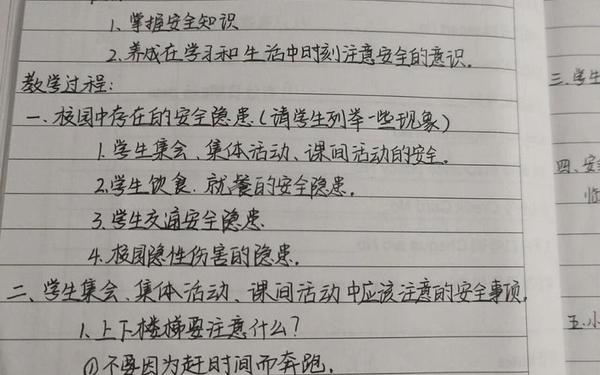 1. 掌握安全知识
2. 养成在学习和生活中时刻注意安全的意识.
教学过程:
一、校园中存在的安全隐患(请学生列举一些现象)
1. 学生集会、集体活动、课间活动的安全.
2. 学生饮食、就餐的安全隐患.
3. 学生交通安全隐患
4. 校园隐性伤害的隐患.
二、学生集会、集体活动、课间活动中应该注意的安全事项.
1. 上下楼梯要注意什么?
①不要因为赶时间而奔跑.
三.学生
四、安
临
五.小